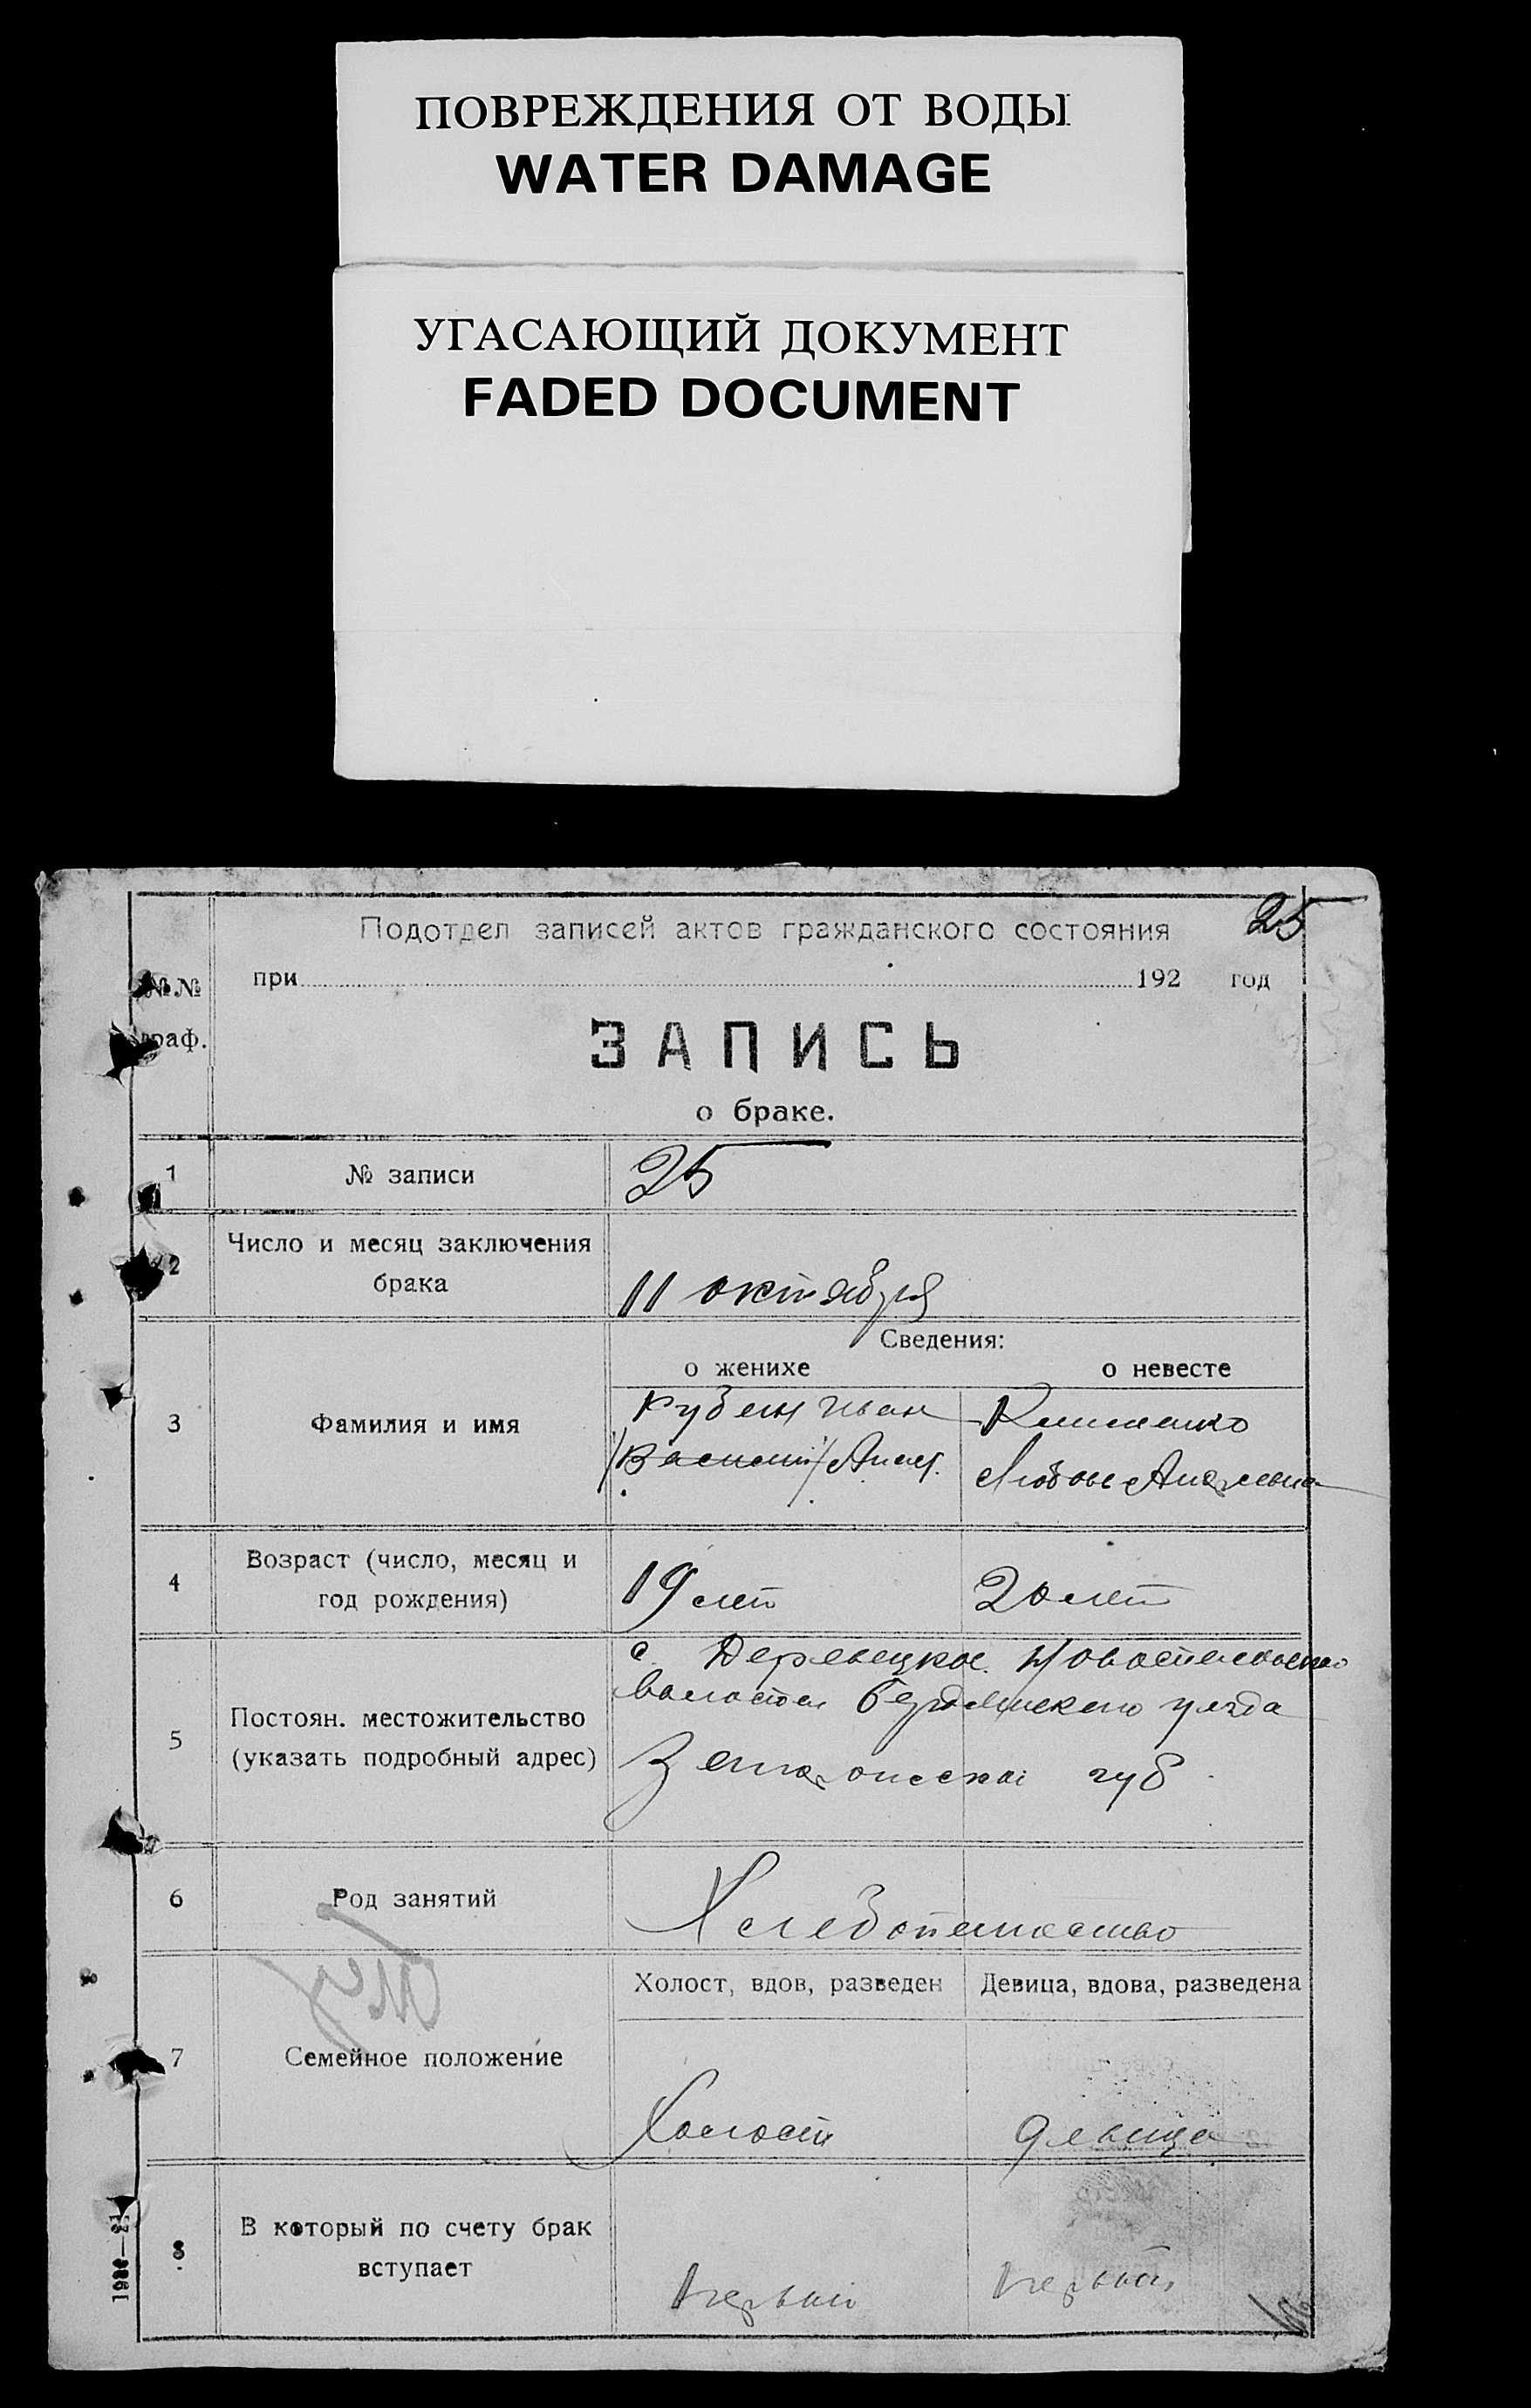 ПОВРЕЖДЕНИЯ ОТ ВОДЫ
WATER DAMAGE
УГАСАЮЩИЙ ДОКУМЕНТ
FADED DOCUMENT
25
Подотдел записей актов гражданского состояния
№№ при 192 год
граф.
ЗАПИСЬ
о браке.
1 № записи 25
2 Число и месяц заключения
брака 11 октября
Сведения:
о женихе о невесте
3 Фамилия и имя
Иван
Любовь
4 Возраст (число, месяц и
год рождения) 19 лет 20 лет
5 Постоян. местожительство
(указать подробный адрес)
с.
волости Бердянского уезда
губ.
6 Род занятий Хлебопашество
Холост, вдов, разведен Девица, вдова, разведена
7 Семейное положение
Холост девица
8 В который по счету брак
вступает первый первый